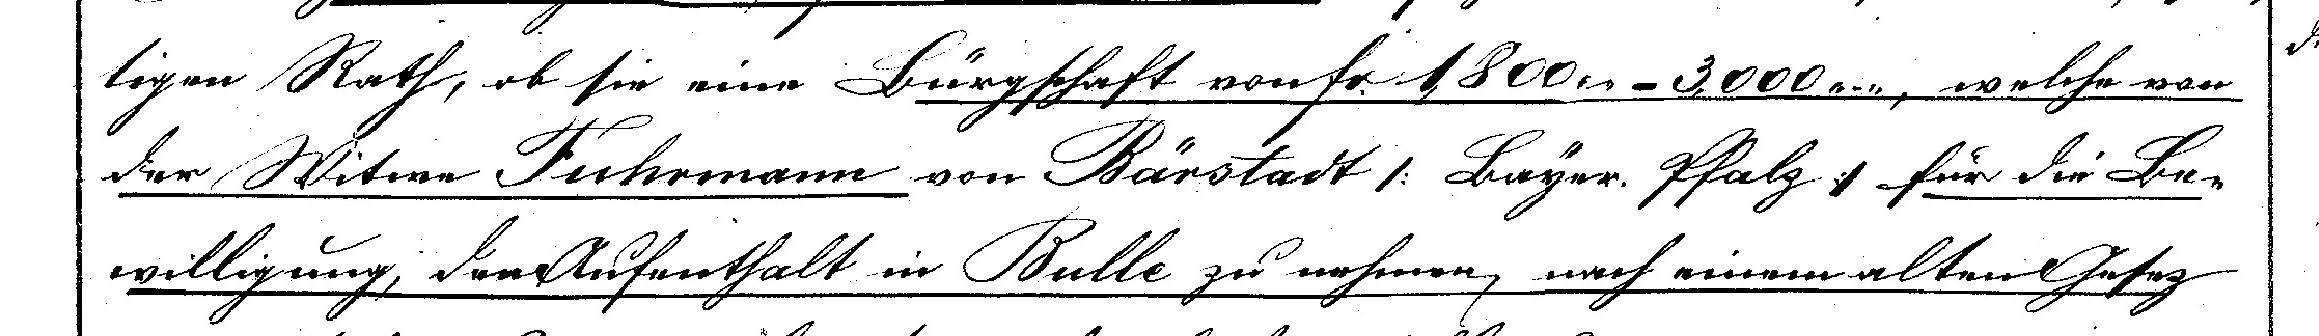 tigen Rath, ob sie eine Bürgschaft von fr. 1,800.- - 3,000.-, welche von
der Witwe Fuhrmann von Bärstadt /: Bayer. Pfalz :/ für die Be-
willigung, den Aufenthalt in Bulle zu nehmen, nach einem alten Gesez